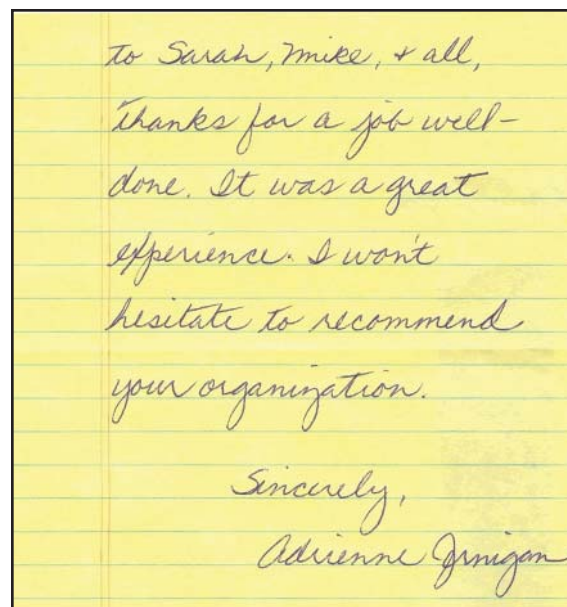 to Sarah, Mike, & all,
thanks for a job well-
done. It was a great
experience. I won't
hesitate to recommend
your organization.
Sincerely,
Adrienne Jrnigan